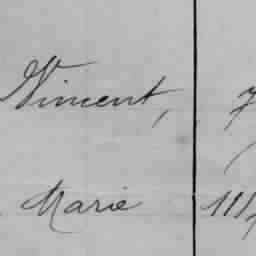 Vincent,
Marie